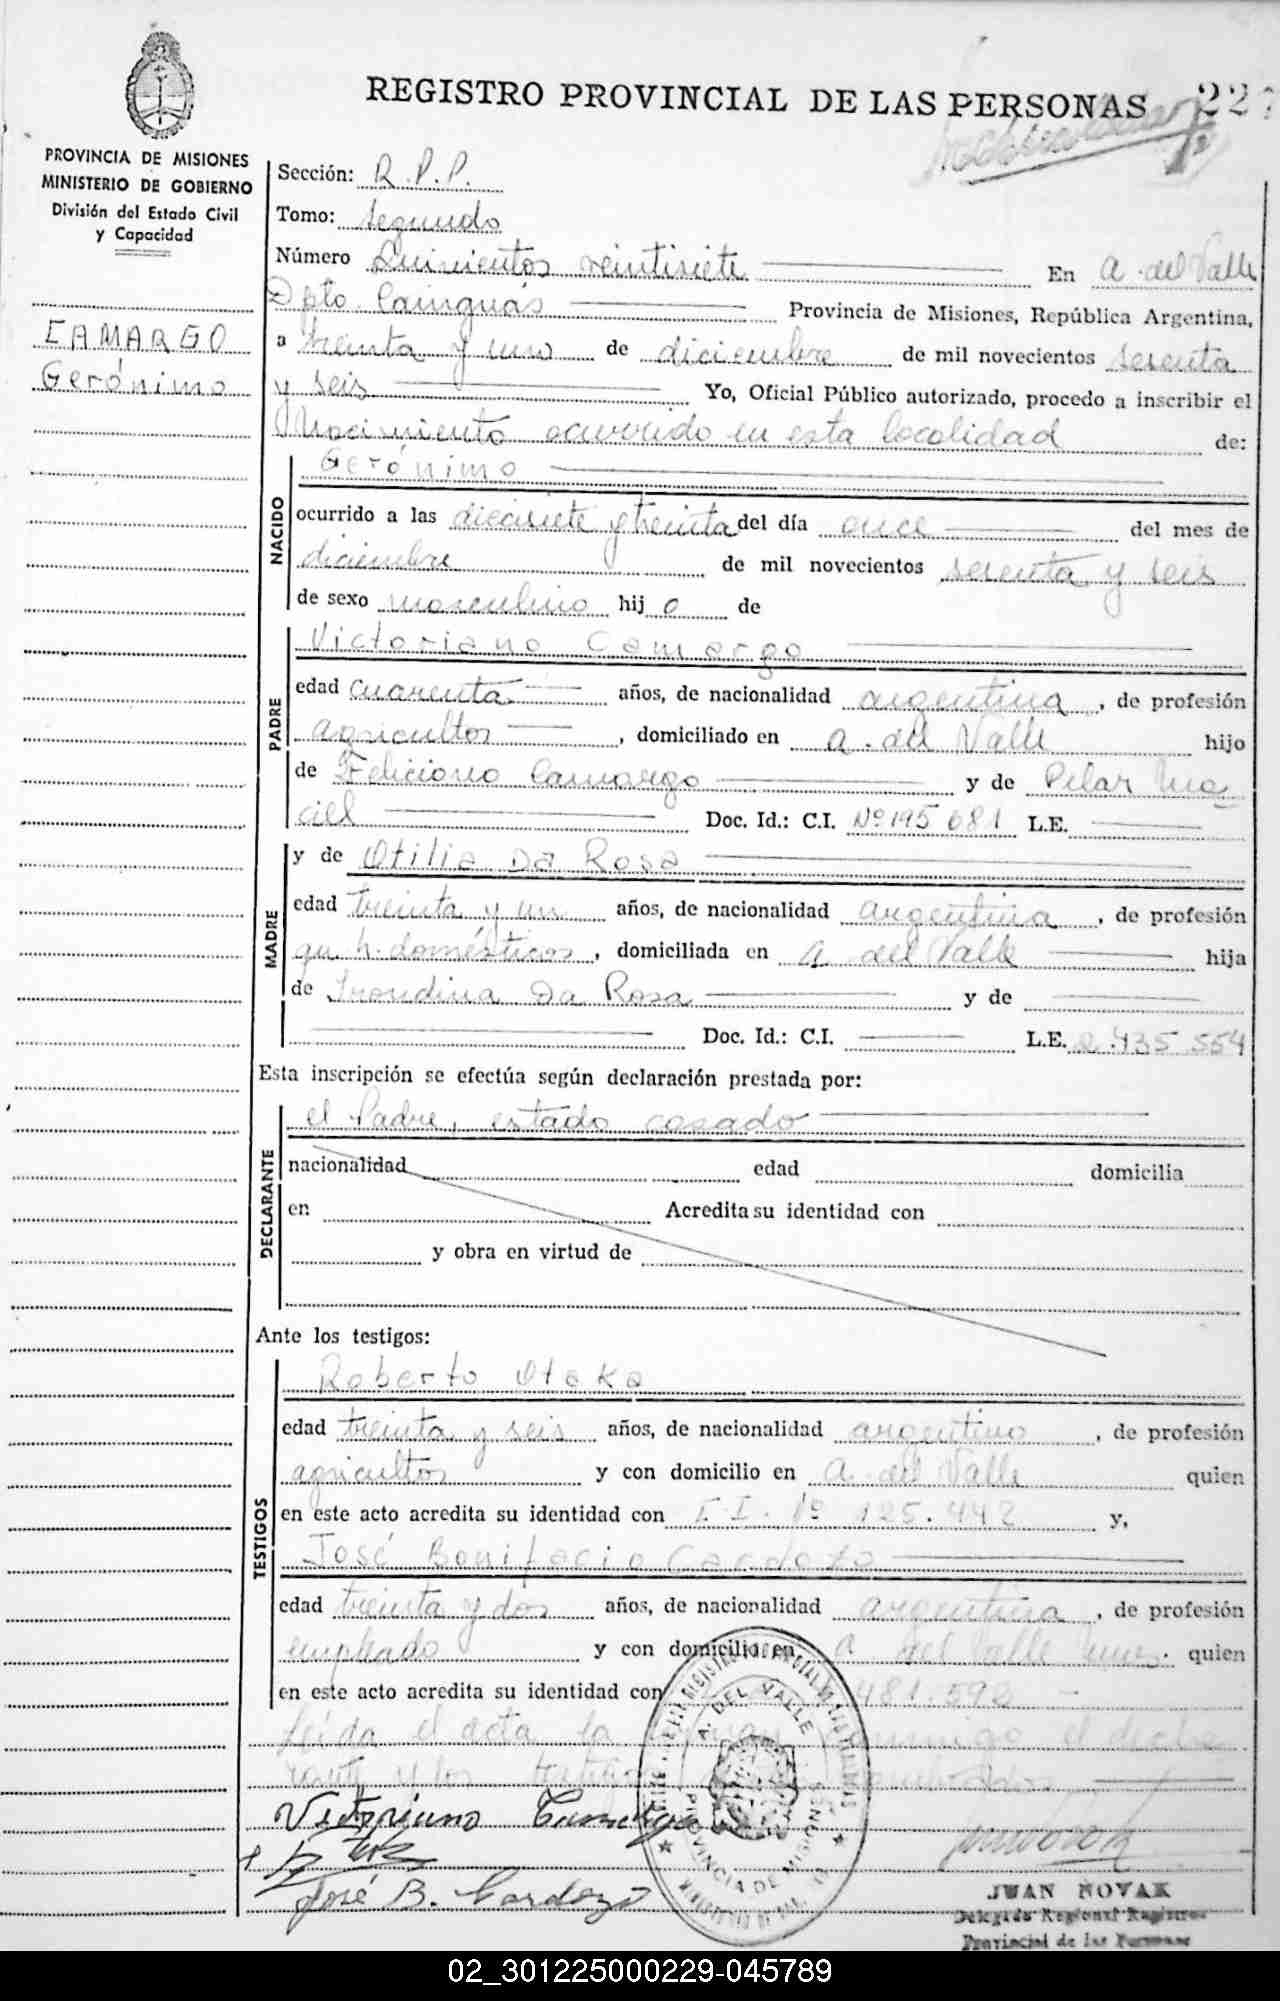 REGISTRO PROVINCIAL DE LAS PERSONAS 227
PROVINCIA DE MISIONES
MINISTERIO DE GOBIERNO
División del Estado Civil
y Capacidad
CAMARGO
Gerónimo
Sección: R.P.P.
Tomo: segundo
Número Quinientos veintisiete En A. del Valle
Dpto Cainguás Provincia de Misiones, República Argentina,
a treinta y uno de diciembre de mil novecientos sesenta
y seis Yo, Oficial Público autorizado, procedo a inscribir el
Nacimiento ocurrido en esta localidad de:
Gerónimo
NACIDO
ocurrido a las diecisiete y treinta del día once del mes de
diciembre de mil novecientos sesenta y seis
de sexo masculino hijo de
Victoriano Camargo
PADRE
edad cuarenta años, de nacionalidad argentina, de profesión
agricultor, domiciliado en A. del Valle hijo
de Feliciano Camargo y de Pilar Ma
ciel Doc. Id.: C.I. Nº 195 681 L.E.
MADRE
y de Otilia Da Rosa
edad treinta y un años, de nacionalidad argentina, de profesión
qu h. domésticos, domiciliada en A. del Valle hija
de Da Rosa y de
Doc. Id.: C.I. L.E. 2.435 554
Esta inscripción se efectúa según declaración prestada por:
DECLARANTE
el Padre, estado casado
nacionalidad edad domicilia
en Acredita su identidad con
y obra en virtud de
Ante los testigos:
TESTIGOS
Roberto Otaka
edad treinta y seis años, de nacionalidad argentino, de profesión
agricultor y con domicilio en A. del Valle quien
en este acto acredita su identidad con C.I. Nº 125.442 y,
José Bonifacio Cardozo
edad treinta y dos años, de nacionalidad argentina, de profesión
empleado y con domicilio en A del Valle quien
en este acto acredita su identidad con 481.592
Leída el acta la firman conmigo el decla
rante y los testigos
Victoriano Camargo
José B. Cardozo
A. DEL VALLE
PROVINCIA DE MISIONES
JUAN NOVAK
Delegado Regional Registro
Provincial de las Personas
02_301225000229-045789